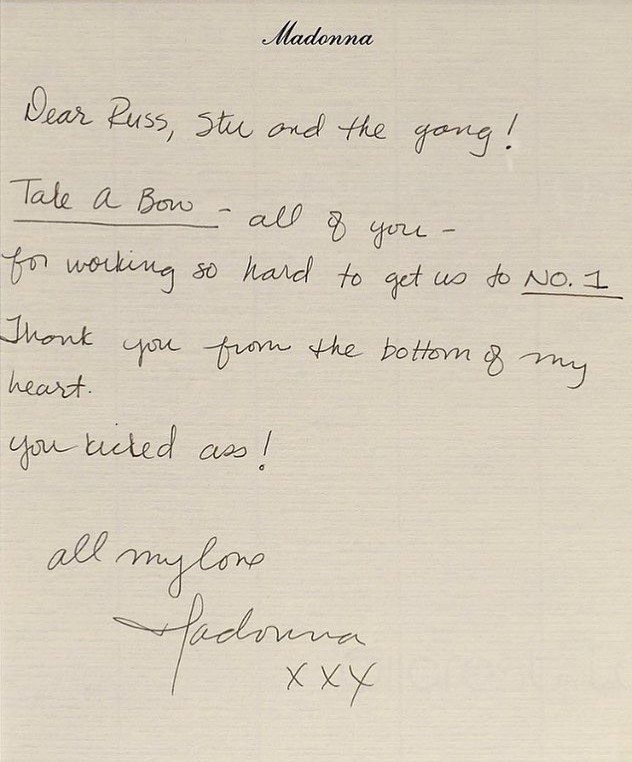 Madonna
Dear Russ, Stu and the gang!
Take A Bow - all of you -
for working so hard to get us to NO. 1
Thank you from the bottom of my
heart.
you kicked ass!
all my love
Madonna
xxx